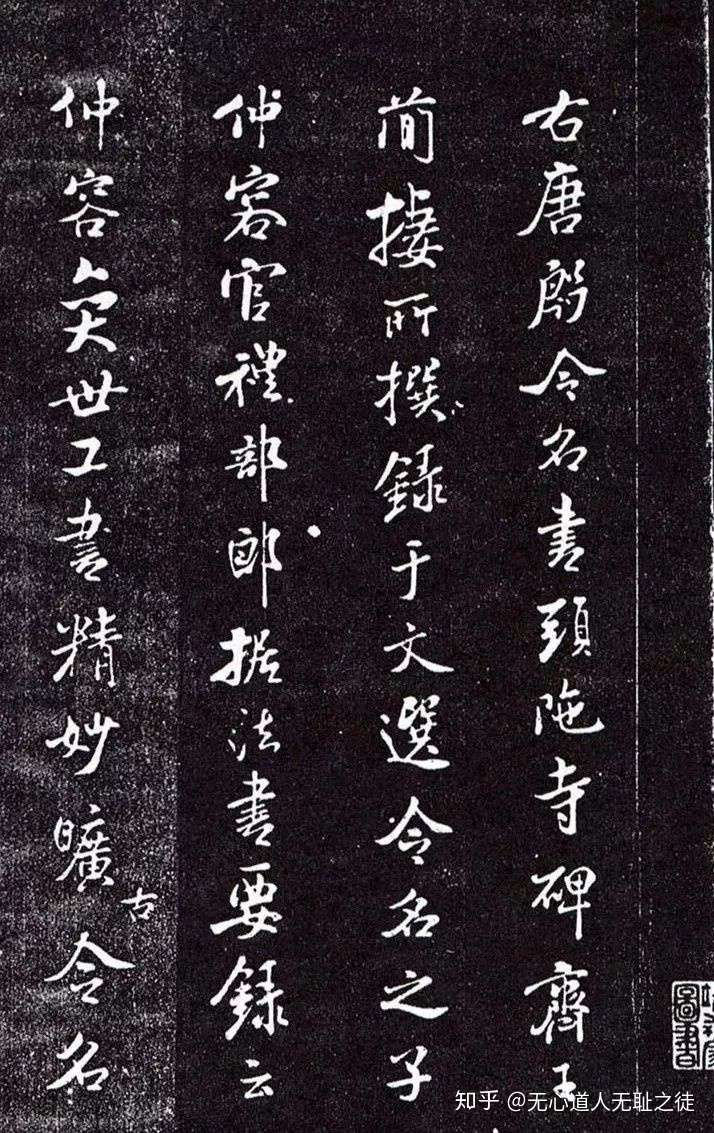 右唐殷令名書頭陁寺碑齊王
簡棲所撰録于文選令名之子
仲容官禮部郎据法書要録云
仲容奕世工書精妙曠古令名
圖書
知乎 @无心道人无耻之徒